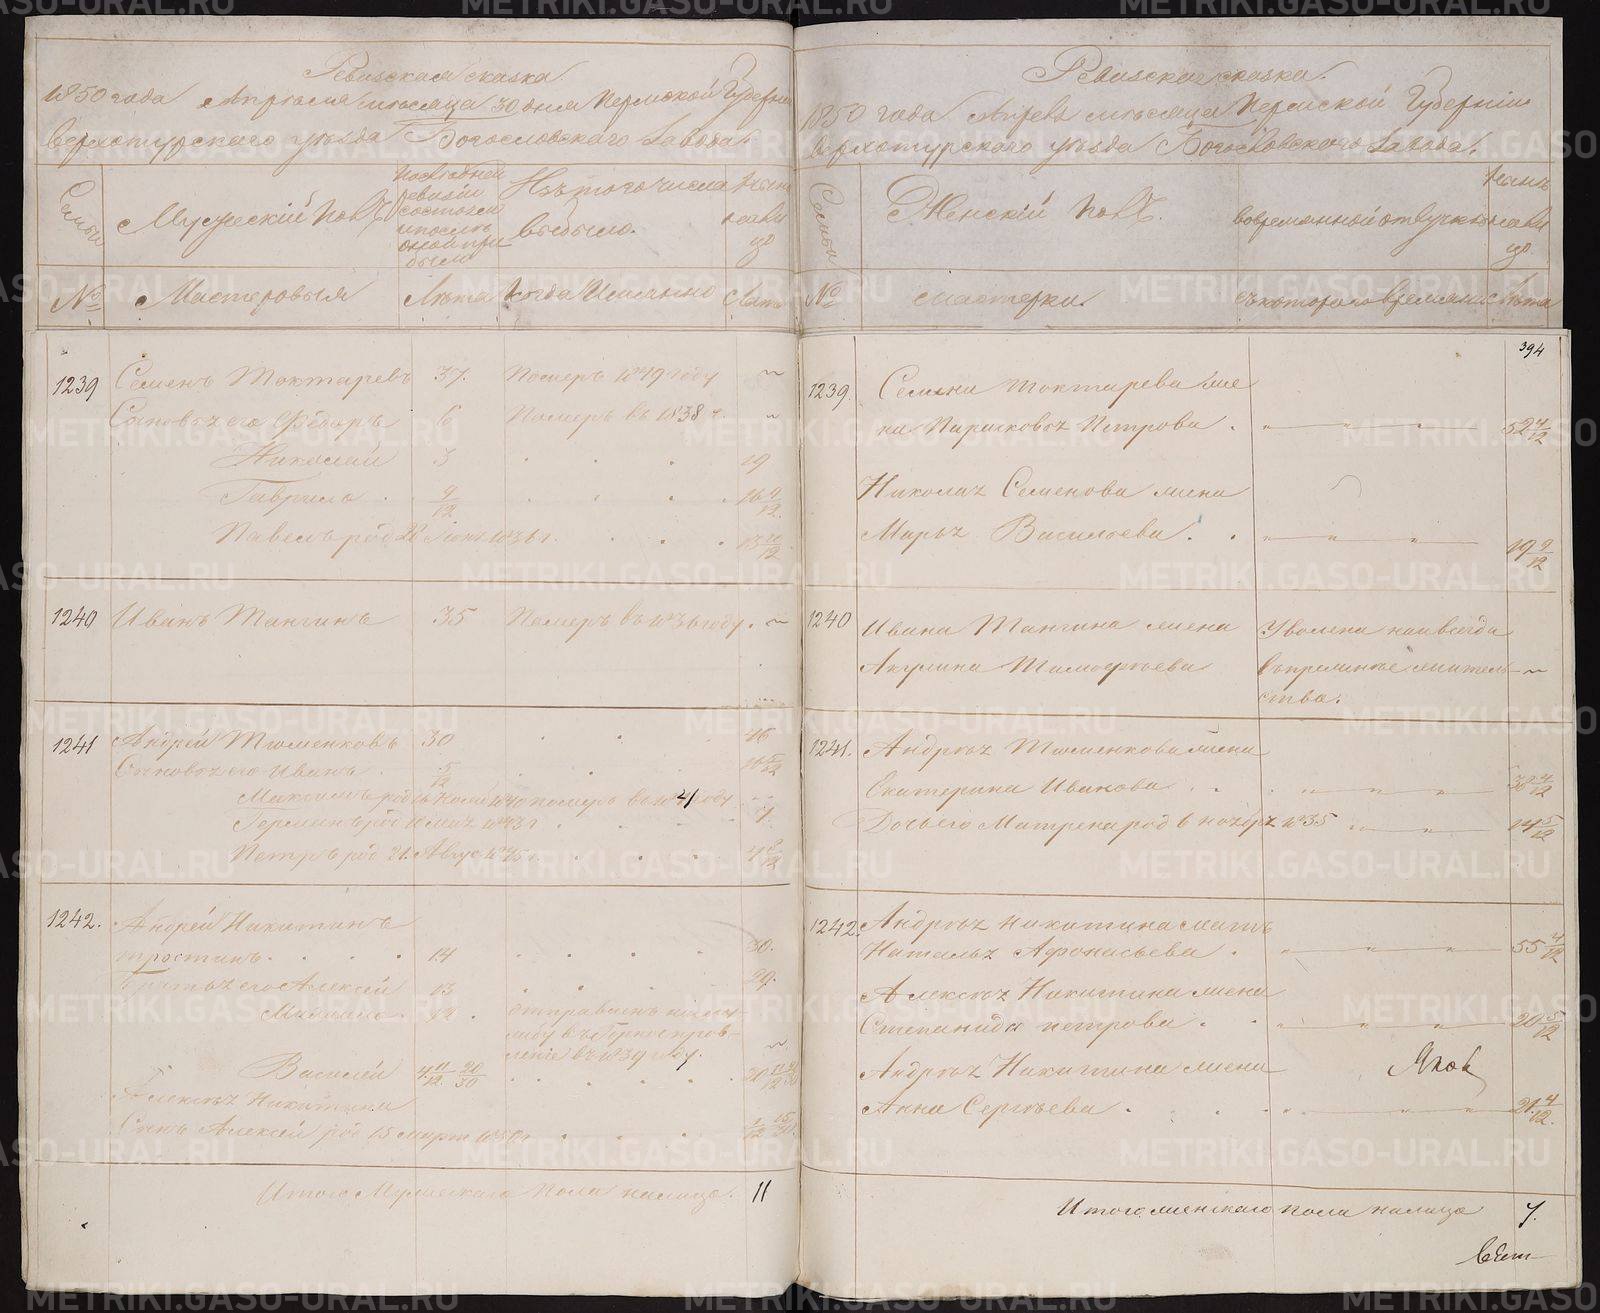 Ревизская сказка.
1850 года Апреля месяца 30 дня Пермской Губернии
Верхотурскаго уезда Богословскаго Завода.
Семьи
Мужескій полъ
последней
ревизіи
состояли
и после
оной при
были
Изъ того числа
выбыло.
Ныне
на лицо
№
Мастеровыя
Лета
когда именно
Лета
1239
Семенъ Токтаревъ 37. Померъ 1849 году
Сыновья его Фёдоръ 6 Померъ въ 1838 г.
Николай 3 19
Гаврило 4/12 16 4/12
Павелъ род 1836 г. 13
1240 Иванъ Тангинъ 35 Померъ въ 1836 году.
1241 Андрей Тюменковъ 30 46
Сыновья его Иванъ 5/12 16 5/12
Максимъ род 1840 померъ въ 1841 году
Германъ род 1843 г 7
Петръ род 21. Авгус 1845 г. 4 8/12
1242. Андрей Никитинъ
тростинъ 14 30.
Братья его Алексей 13 29.
Михаило 12 отправленъ
въ Горное прав-
леніе въ 1839 году.
Василей 4 11/12 20/30 20
Алексея Никитина
Сынъ Алексей род 15 Марта 1850 г 1/12 15/30
Итого Мужескаго пола налицо. 11
Ревизская сказка.
1850 года Апреля месяца Пермской Губерніи
Верхотурскаго уезда Богословскаго Завода.
Семьи
Женскій полъ.
во временной отлучке
Ныне
на лицо
№
мастерки.
съ котораго времени
Лета
394
1239. Семена Токтарева же
на Парасковья Петрова 52 4/12
Николая Семенова жена
Марья Васильева 19 9/12
1240 Ивана Тангина жена Уволена навсегда
Акулина Тимофеева
ства.
1241. Андрея Тюменкова жена
Екатерина Иванова 38 4/12
Дочь его Матрена род 6 ноябр 1835 14 5/12
1242. Андрея Никитина мать
Наталья Афонасьева 55 4/12
Алексея Никитина жена
Степанида петрова 20 5/12
Андрея Никитина жена Яков
Анна Сергеева 21 4/12.
Итого женскаго пола налицо 7.